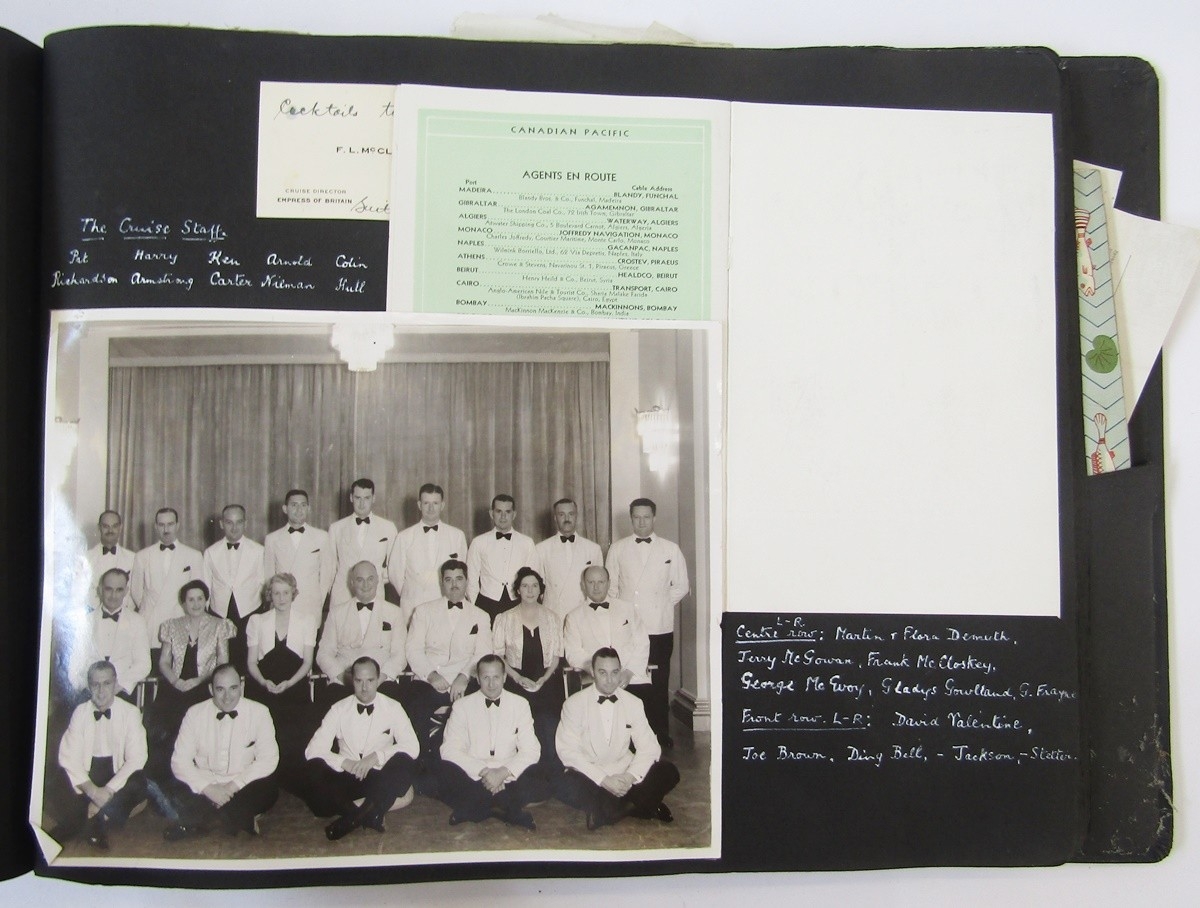 Cocktails
F. L. McCL
CRUISE DIRECTOR
EMPRESS OF BRITAIN
CANADIAN PACIFIC
AGENTS EN ROUTE
Port Cable Address
MADEIRA BLANDY, FUNCHAL
Blandy Bros. & Co., Funchal, Madeira
GIBRALTAR AGAMEMNON, GIBRALTAR
The London Coal Co., 72 Irish Town, Gibraltar
ALGIERS WATERWAY, ALGIERS
Atwater Shipping Co., 5 Boulevard Carnot, Algiers, Algeria
MONACO JOFFREDY NAVIGATION, MONACO
Charles Joffredy, Gourtier Maritime, Monte Carlo, Monaco
NAPLES GACANPAC, NAPLES
Wilwink Borriello, Ltd., 62 Via Depretis, Naples, Italy
ATHENS CROSTEV, PIRAEUS
Crowe & Stevens, Navarinou St. 1, Piraeus, Greece
BEIRUT HEALDCO, BEIRUT
Henry Heald & Co., Beirut, Syria
CAIRO TRANSPORT, CAIRO
Anglo-American Nile & Tourist Co., Sharia Malake Farida
(Ibrahim Pacha Square), Cairo, Egypt
BOMBAY MACKINNONS, BOMBAY
MacKinnon MacKenzie & Co., Bombay, India
The Cruise Staff.
Pat Harry Ken Arnold Colin
Richardson Armstrong Carter Nieman Hull
L-R.
Centre row: Martin + Flora Demuth,
Jerry McGowan, Frank McCloskey,
George McEvoy, Gladys Gowlland, G. Frayne
Front row. L-R: David Valentine,
Joe Brown, Ding Bell, - Jackson, - Stater.